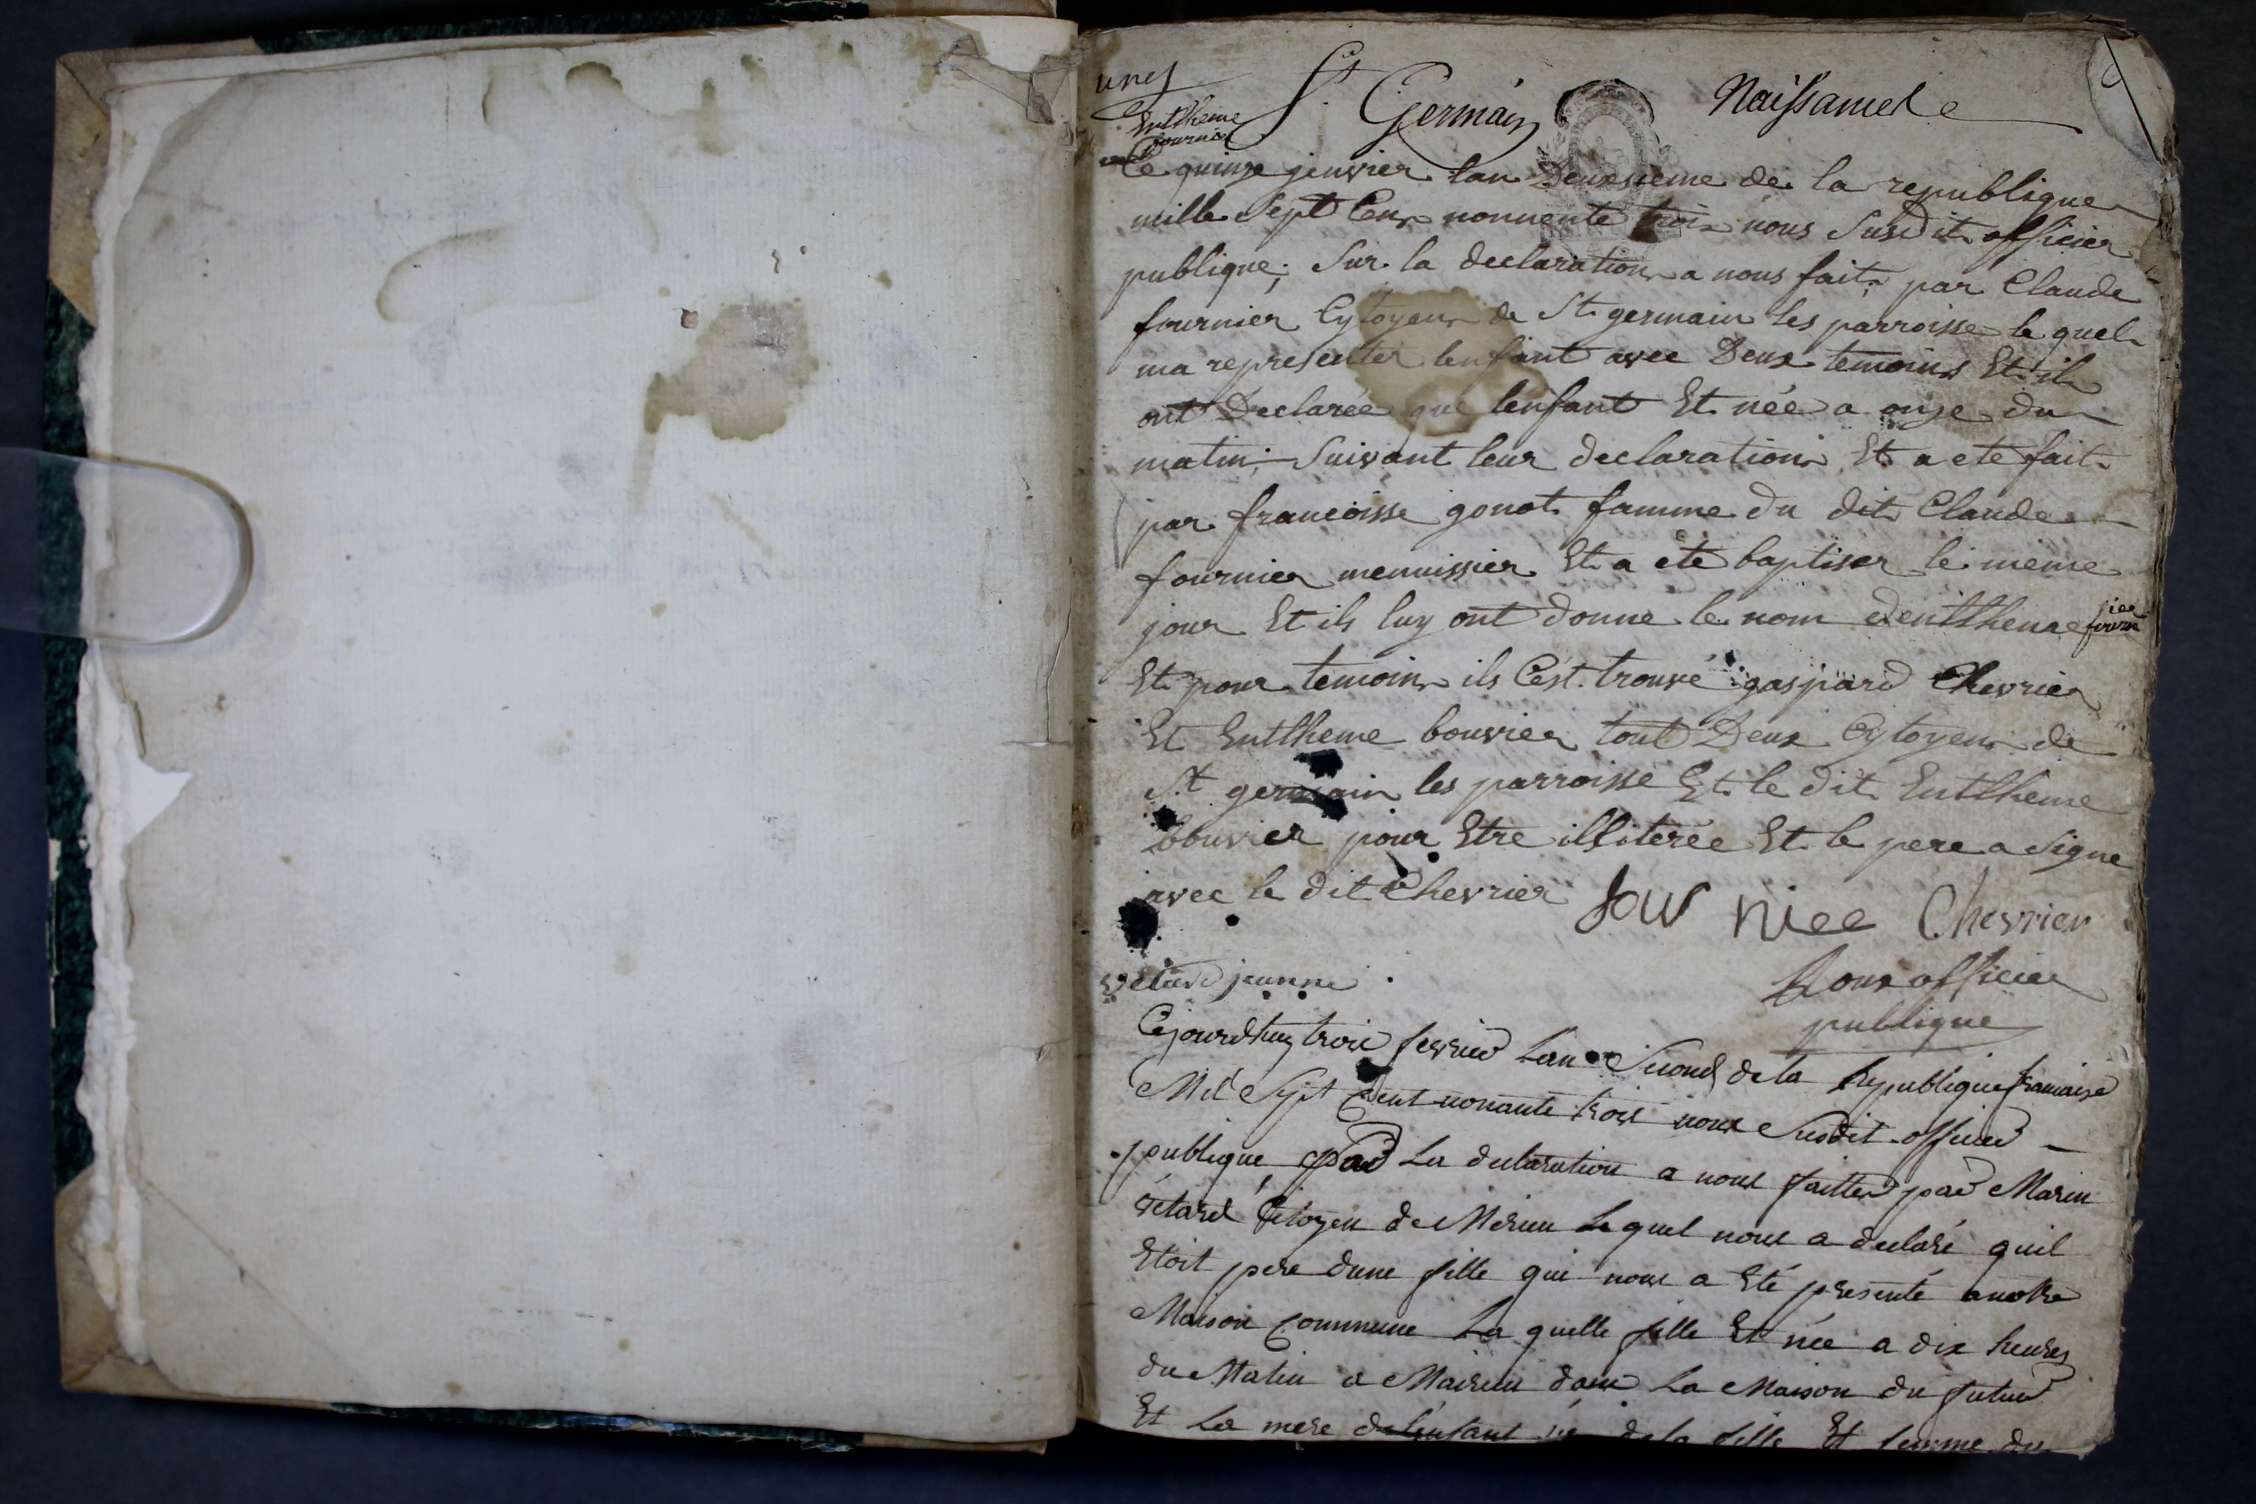 St Germain Naissance
Entheme
fournier
Ce quinze jenvier lan Deuxieme de la republique
mille Sept Cens nonnente trois nous Susdit officier
publique, Sur la declaration a nous fait par Claude
fournier Cytoyen de St germain les parroisse le quel
ma representer lenfant avec Deux temoins Et ils
ont Declarée que lenfant Et née a onze du
matin Suivant leur declaration Et a ete fait
par francoisse gonot famme du dit Claude
fournier menuissier Et a ete baptiser le meme
jour Et ils luy ont donne le nom dentheme fournier
Et pour temoin ils Cést trouvé gaspard Chevrier
Et Entheme bouvier tout Deux Cytoyen de
St germain les parroisse Et le dit Entheme
bouvier pour Etre illiterée Et le pere a Signe
avec le dit Chevrier four niee Chevrier
officier
publique
vétard jeanne
Cejourdhuy trois fevrier Lan Second de la Republique francaise
Mil Sept Cent nonante trois nous Susdit officier
publique, par La declaration a nous faitte par Marin
vétard Citoyen de Merieu Le quel nous a declaré quil
Etoit pere dune fille qui nous a Eté presenté anotre
Maison Commune La quelle fille Et née a dix heures
du Matin a Mairieu dans La Maison du
Et La mere de lenfant de la fille Et femme du